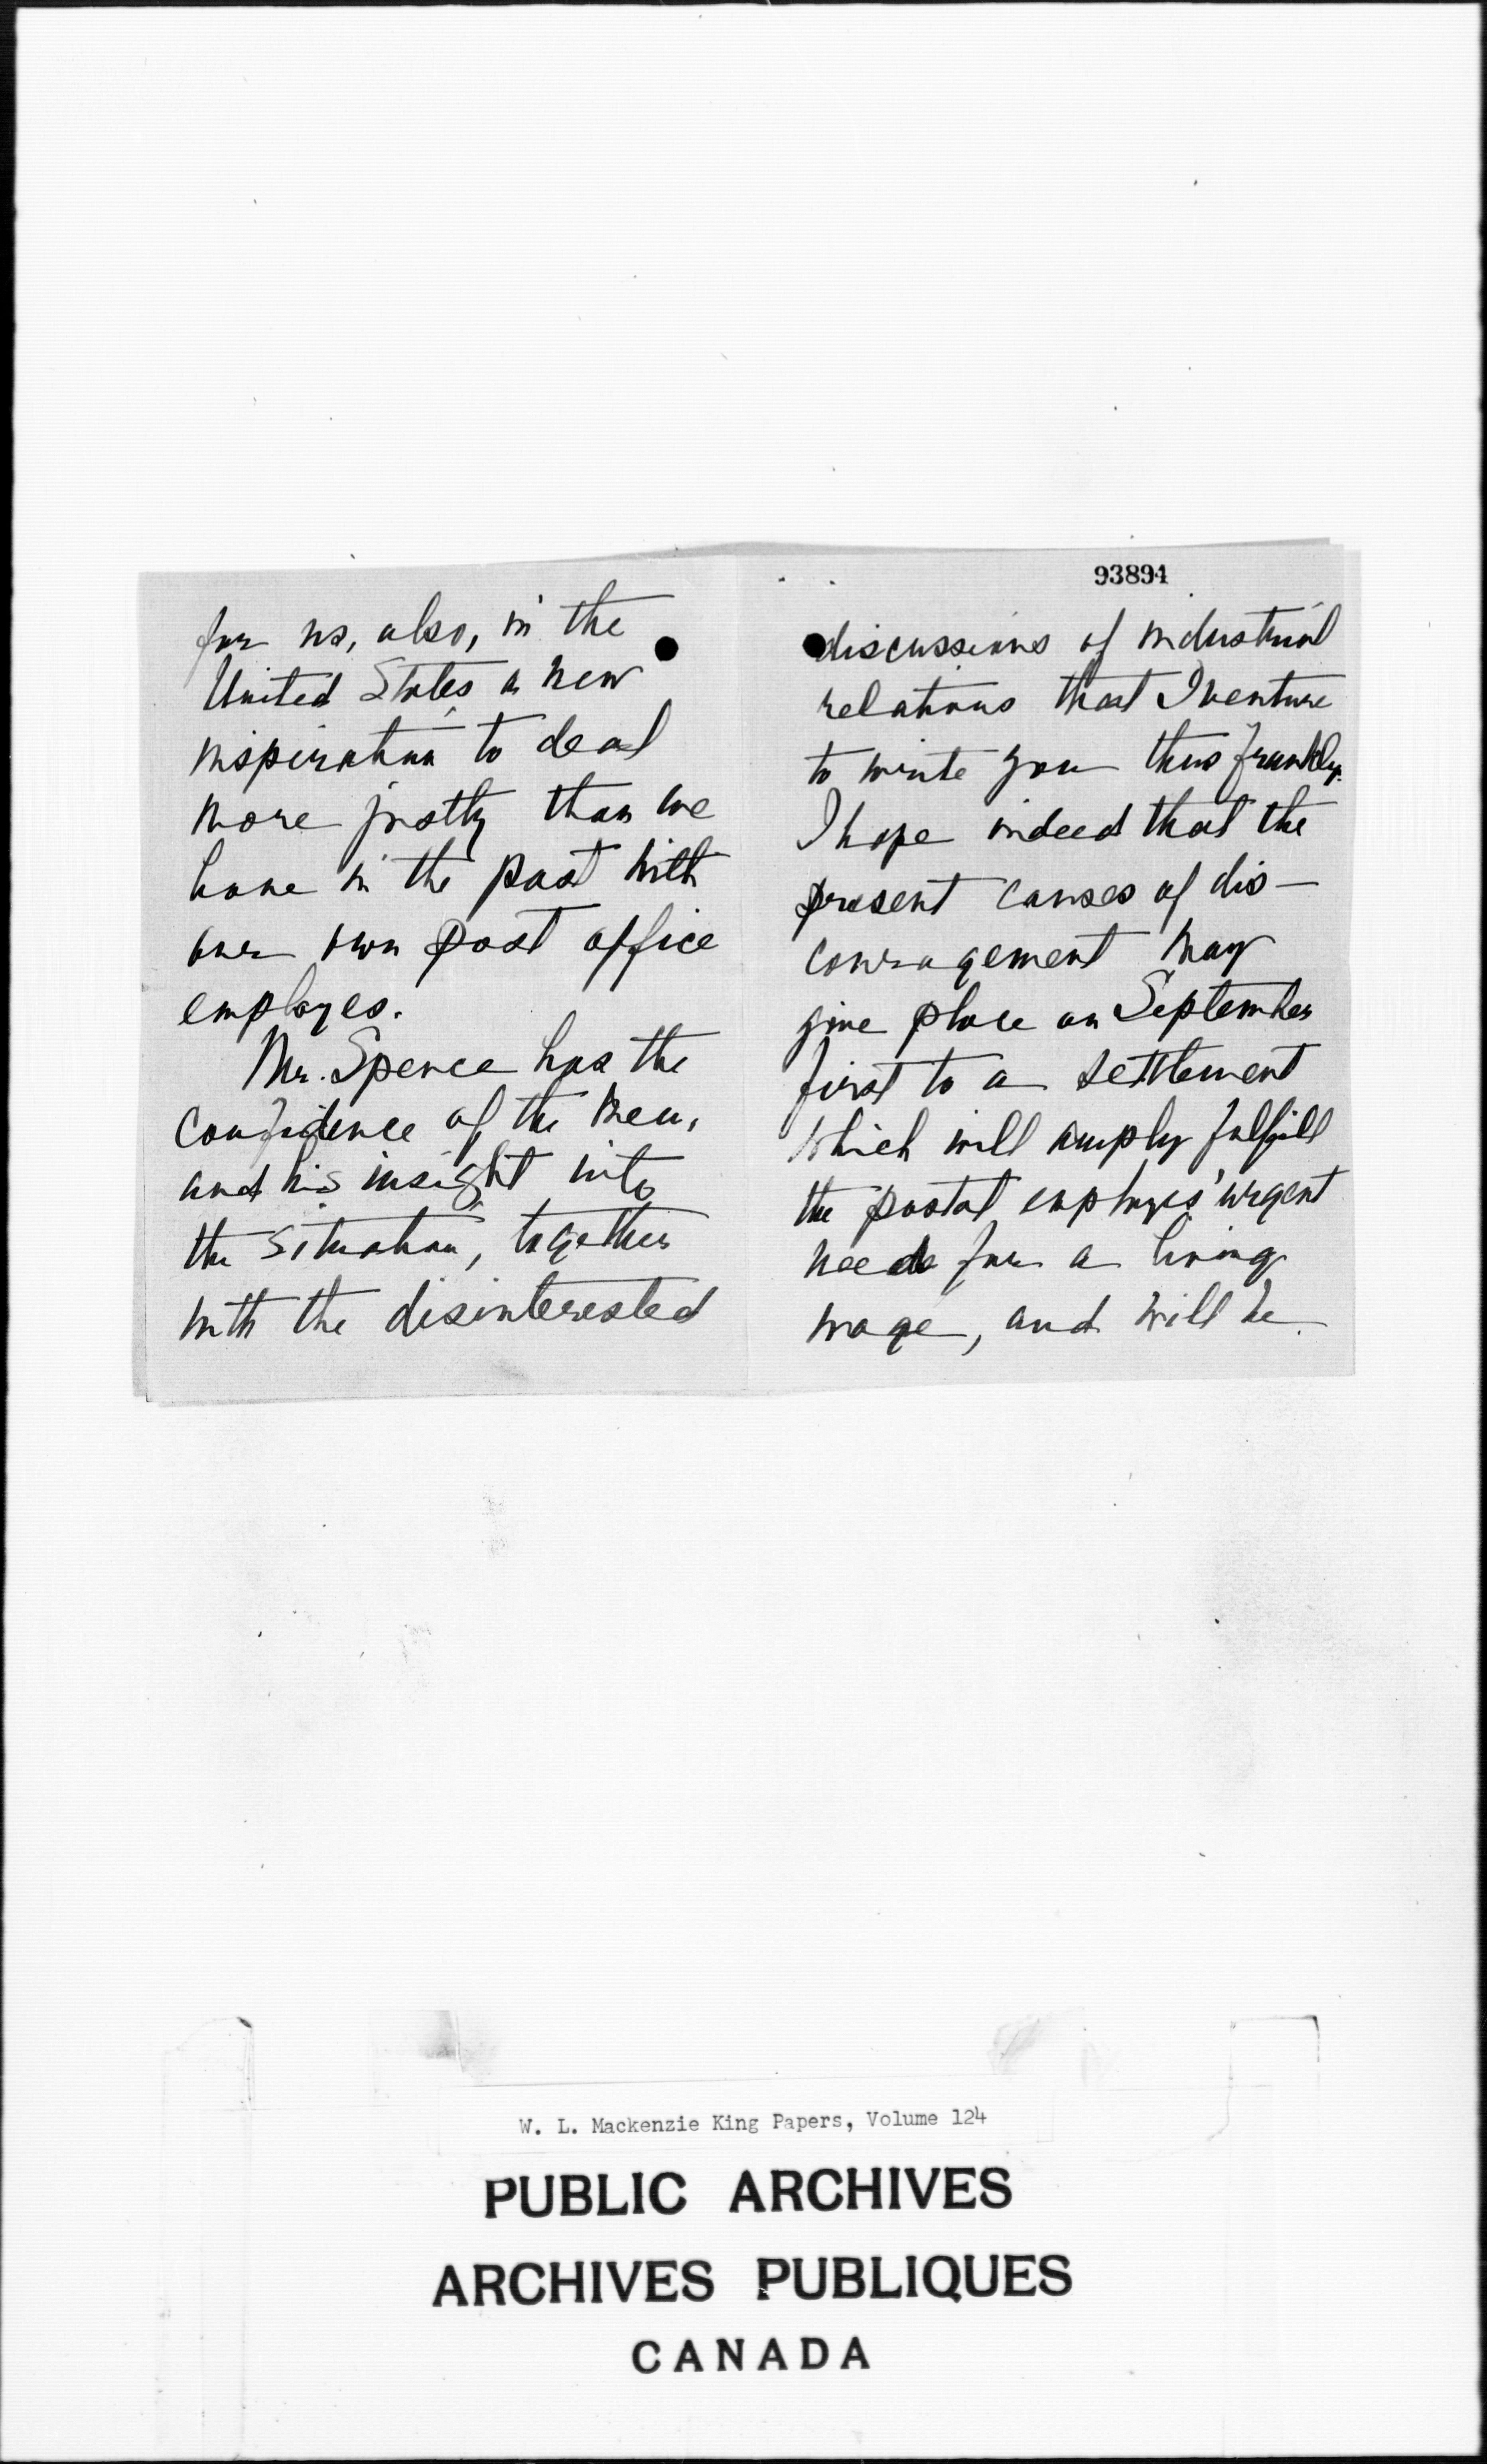 for us, also, in the
United States a new
inspiration to deal
more justly than we
have in the past with
our own post office
employes.
Mr. Spence has the
confidence of the men,
and his insight into
the situation, together
with the disinterested
93894
discussions of industrial
relations that I venture
to write you thus frankly.
I hope indeed that the
present causes of dis-
couragement may
give place on September
first to a settlement
which will amply fulfill
the postal employes' urgent
needs for a living
wage, and will be
W. L. Mackenzie King Papers, Volume 124
PUBLIC ARCHIVES
ARCHIVES PUBLIQUES
CANADA